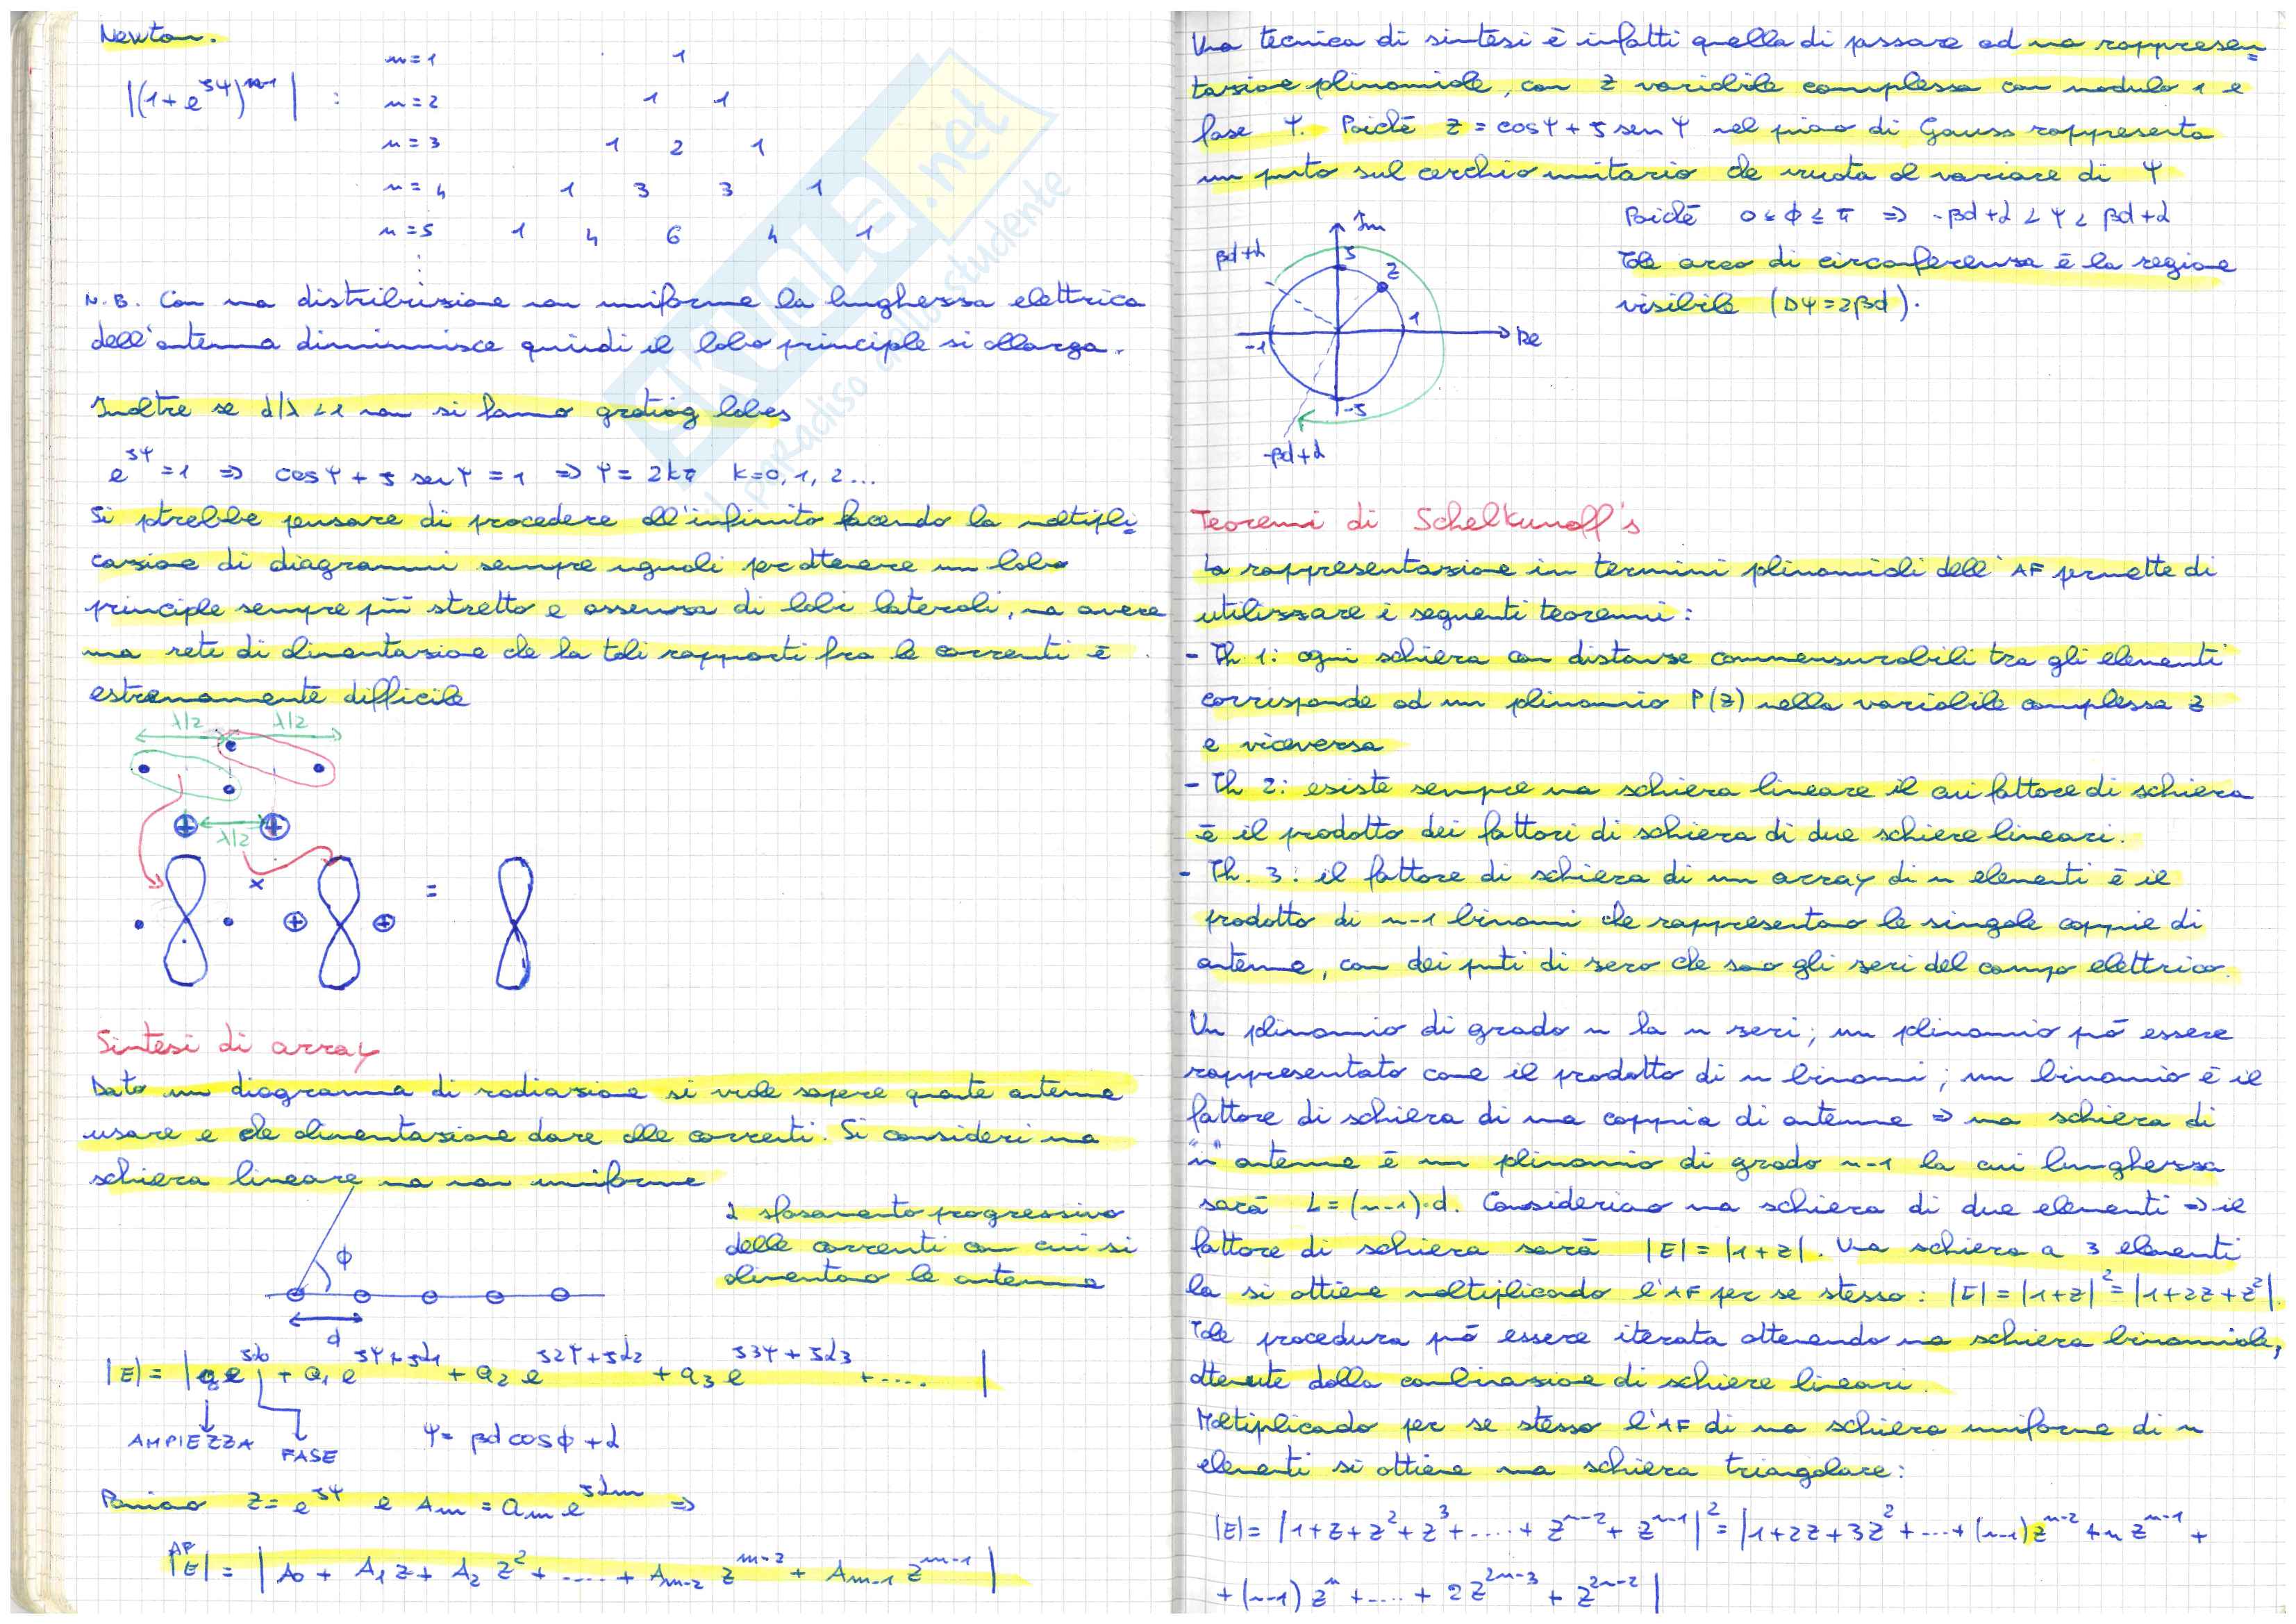 Newton.
|(1+e^{jψ})^{n-1}| :
n=1 1
n=2 1 1
n=3 1 2 1
n=4 1 3 3 1
n=5 1 4 6 4 1
N.B. Con una distribuzione non uniforme la lunghezza elettrica
dell'antenna diminuisce quindi il lobo principale si allarga.
Inoltre se d/λ<1 non si hanno grating lobes
e^{jψ}=1 ⇒ cosψ + j senψ = 1 ⇒ ψ = 2kπ k=0,1,2...
Si potrebbe pensare di procedere all'infinito facendo la moltipli
cazione di diagrammi sempre uguali per ottenere un lobo
principale sempre più stretto e assenza di lobi laterali, ma avere
una rete di alimentazione che ha tali rapporti fra le correnti è
estremamente difficile
λ/2 λ/2
λ/2
x =
Sintesi di array
Dato un diagramma di radiazione si vuole sapere quante antenne
usare e che alimentazione dare alle correnti. Si consideri una
schiera lineare ma non uniforme
α sfasamento progressivo
delle correnti con cui si
alimentano le antenne
ϕ
d
|E| = |a₀e^{jα₀} + a₁e^{jψ+jα₁} + a₂e^{j2ψ+jα₂} + a₃e^{j3ψ+jα₃} + .... |
AMPIEZZA FASE ψ = βd cosϕ + α
Poniamo z = e^{jψ} e Am = am e^{jαm} ⇒
AF
|E| = |A₀ + A₁z + A₂z² + .... + A_{m-2} z^{m-2} + A_{m-1} z^{m-1}|
Una tecnica di sintesi è infatti quella di passare ad una rappresen
tazione polinomiale, con z variabile complessa con modulo 1 e
fase ψ. Poiché z = cosψ + j senψ nel piano di Gauss rappresenta
un punto sul cerchio unitario che ruota al variare di ψ
Poiché 0≤ϕ≤π ⇒ -βd+α < ψ < βd+α
Tale arco di circonferenza è la regione
visibile (Δψ=2βd).
Im
βd+α
j
z
-1
1
Re
-j
-βd+α
Teoremi di Schelkunoff's
La rappresentazione in termini polinomiali dell'AF permette di
utilizzare i seguenti teoremi:
- Th 1: ogni schiera con distanze commensurabili tra gli elementi
corrisponde ad un polinomio P(z) nella variabile complessa z
e viceversa
- Th 2: esiste sempre una schiera lineare il cui fattore di schiera
è il prodotto dei fattori di schiera di due schiere lineari.
- Th. 3: il fattore di schiera di un array di n elementi è il
prodotto di n-1 binomi che rappresentano le singole coppie di
antenne, con dei punti di zero che sono gli zeri del campo elettrico.
Un polinomio di grado n ha n zeri; un polinomio può essere
rappresentato come il prodotto di n binomi; un binomio è il
fattore di schiera di una coppia di antenne ⇒ una schiera di
"n" antenne è un polinomio di grado n-1 la cui lunghezza
sarà L=(n-1)·d. Consideriamo una schiera di due elementi ⇒ il
fattore di schiera sarà |E|=|1+z|. Una schiera a 3 elementi
la si ottiene moltiplicando l'AF per se stesso: |E|=|1+z|²=|1+2z+z²|.
Tale procedura può essere iterata ottenendo una schiera binomiale,
ottenute dalla combinazione di schiere lineari.
Moltiplicando per se stesso l'AF di una schiera uniforme di n
elementi si ottiene una schiera triangolare:
|E| = |1+z+z²+z³+....+z^{n-2}+z^{n-1}|² = |1+2z+3z²+...+(n-1)z^{n-2}+nz^{n-1}+
+(n-1)z^{n}+....+2z^{2n-3}+z^{2n-2}|
SKUOLA.net
il paradiso dello studente